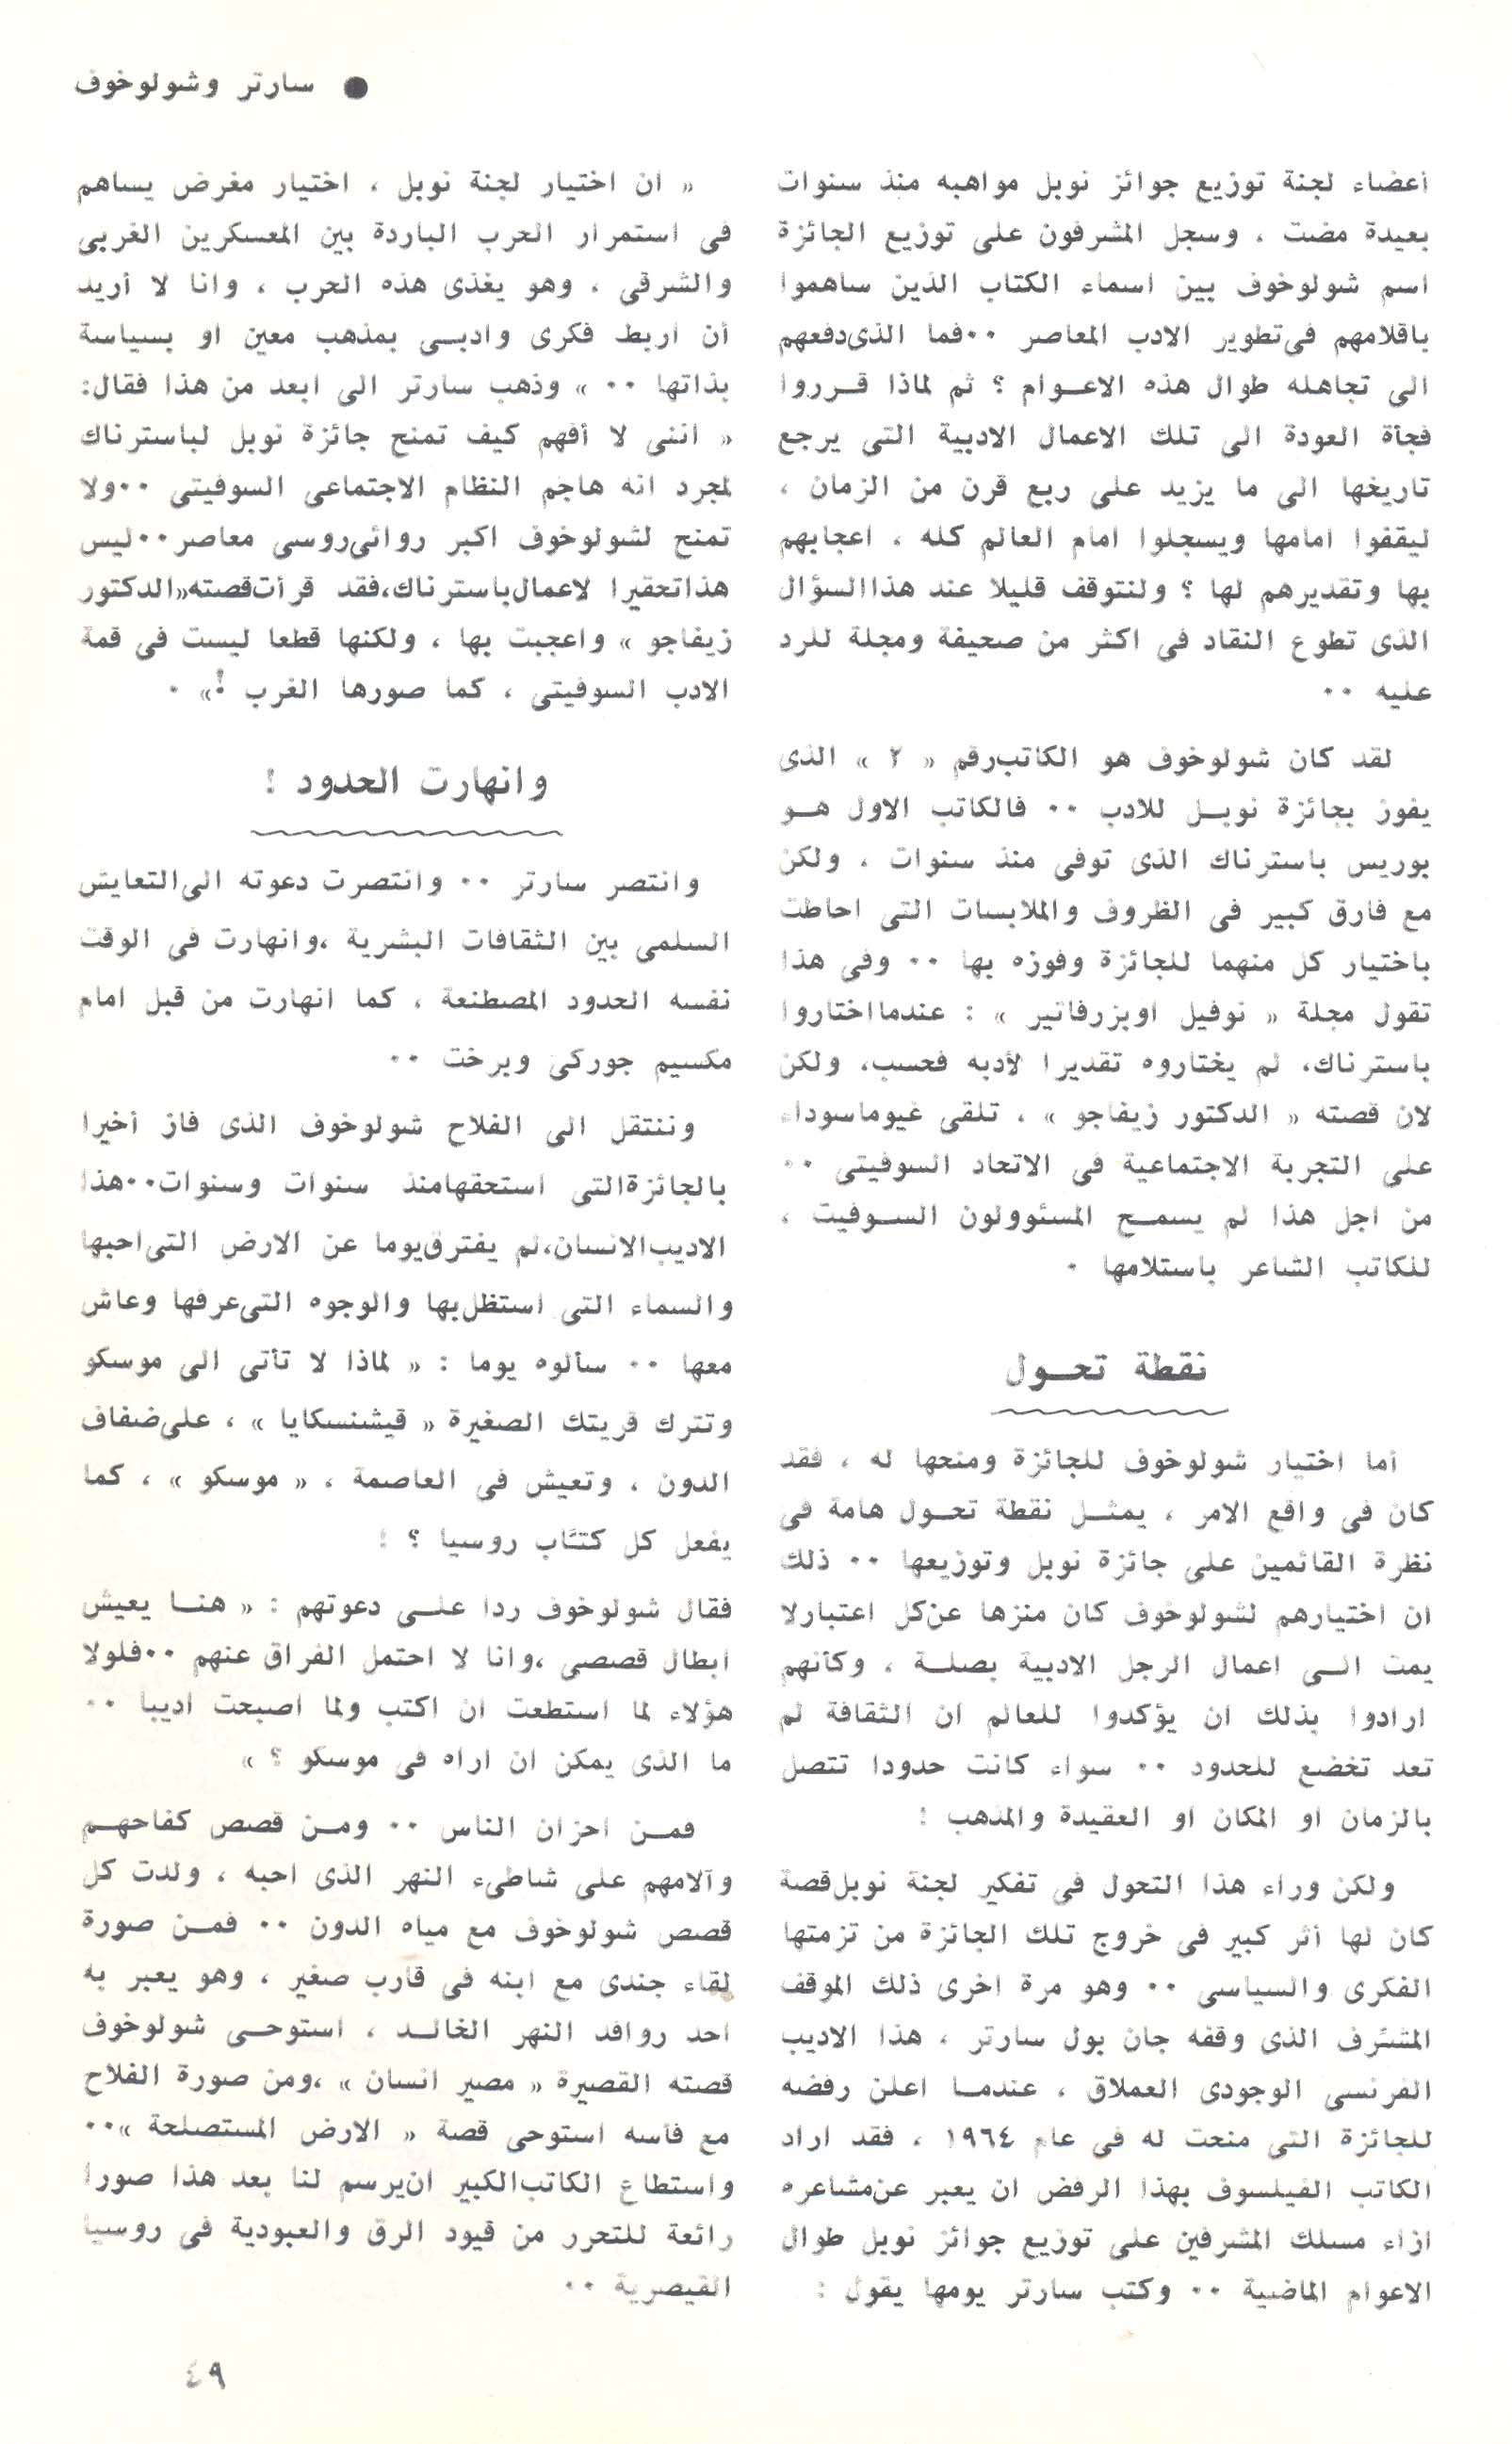 ● سارتر وشولوخوف
أعضاء لجنة توزيع جوائز نوبل مواهبه منذ سنوات
بعيدة مضت ، وسجل المشرفون على توزيع الجائزة
اسم شولوخوف بين اسماء الكتاب الذين ساهموا
باقلامهم فى تطوير الادب المعاصر ٠٠ فما الذى دفعهم
الى تجاهله طوال هذه الاعـوام ؟ ثم لماذا قـرروا
فجأة العودة الى تلك الاعمال الادبية التى يرجع
تاريخها الى ما يزيد على ربع قرن من الزمان ،
ليقفوا امامها ويسجلوا امام العالم كله ، اعجابهم
بها وتقديرهم لها ؟ ولنتوقف قليلا عند هذا السؤال
الذى تطوع النقاد فى اكثر من صحيفة ومجلة للرد
عليه ٠٠
لقد كان شولوخوف هو الكاتب رقم « ٢ » الذى
يفوز بجائزة نوبـل للادب ٠٠ فالكاتب الاول هـو
بوريس باسترناك الذى توفى منذ سنوات ، ولكن
مع فارق كبير فى الظروف والملابسات التى احاطت
باختيار كل منهما للجائزة وفوزه بها ٠٠ وفى هذا
تقول مجلة « نوفيل اوبزرفاتير » : عندما اختاروا
باسترناك، لم يختاروه تقديرا لأدبه فحسب، ولكن
لان قصته « الدكتور زيفاجو » ، تلقى غيوما سوداء
على التجربة الاجتماعية فى الاتحاد السوفيتى ٠٠
من اجل هذا لم يسمـح المسئوولون السـوفيت ،
للكاتب الشاعر باستلامها ٠
نقطة تحـول
أما اختيار شولوخوف للجائزة ومنحها له ، فقد
كان فى واقع الامر ، يمثـل نقطة تحـول هامة فى
نظرة القائمين على جائزة نوبل وتوزيعها ٠٠ ذلك
ان اختيارهم لشولوخوف كان منزها عن كل اعتبار لا
يمت الـى اعمال الرجل الادبية بصلـة ، وكأنهم
ارادوا بذلك ان يؤكدوا للعالم ان الثقافة لم
تعد تخضع للحدود ٠٠ سواء كانت حدودا تتصل
بالزمان او المكان او العقيدة والمذهب !
ولكن وراء هذا التحول فى تفكير لجنة نوبل قصة
كان لها أثر كبير فى خروج تلك الجائزة من تزمتها
الفكرى والسياسى ٠٠ وهو مرة اخرى ذلك الموقف
المشرف الذى وقفه جان بول سارتر ، هذا الاديب
الفرنسى الوجودى العملاق ، عندمـا اعلن رفضه
للجائزة التى منحت له فى عام ١٩٦٤ ، فقد اراد
الكاتب الفيلسوف بهذا الرفض ان يعبر عن مشاعره
ازاء مسلك المشرفين على توزيع جوائز نوبل طوال
الاعوام الماضية ٠٠ وكتب سارتر يومها يقول :
« ان اختيار لجنة نوبل ، اختيار مغرض يساهم
فى استمرار الحرب الباردة بين المعسكرين الغربى
والشرقى ، وهو يغذى هذه الحرب ، وانا لا أريد
أن اربط فكرى وادبـى بمذهب معين او بسياسة
بذاتها ٠٠ » وذهب سارتر الى ابعد من هذا فقال:
« اننى لا أفهم كيف تمنح جائزة نوبل لباسترناك
لمجرد انه هاجم النظام الاجتماعى السوفيتى ٠٠ ولا
تمنح لشولوخوف اكبر روائى روسى معاصر ٠٠ ليس
هذا تحقيرا لاعمال باسترناك، فقد قرأت قصته «الدكتور
زيفاجو » واعجبت بها ، ولكنها قطعا ليست فى قمة
الادب السوفيتى ، كما صورها الغرب !» ٠
وانهارت الحدود !
وانتصر سارتر ٠٠ وانتصرت دعوته الى التعايش
السلمى بين الثقافات البشرية ،وانهارت فى الوقت
نفسه الحدود المصطنعة ، كما انهارت من قبل امام
مكسيم جوركى وبرخت ٠٠
وننتقل الى الفلاح شولوخوف الذى فاز أخيرا
بالجائزة التى استحقها منذ سنوات وسنوات ٠٠ هذا
الاديب الانسان، لم يفترق يوما عن الارض التى احبها
والسماء التى استظل بها والوجوه التى عرفها وعاش
معها ٠٠ سألوه يوما : « لماذا لا تأتى الى موسكو
وتترك قريتك الصغيرة « قيشنسكايا » ، على ضفاف
الدون ، وتعيش فى العاصمة ، « موسكو » ، كما
يفعل كل كتاب روسيا ؟ !
فقال شولوخوف ردا علـى دعوتهم : « هنـا يعيش
ابطال قصصى ،وانا لا احتمل الفراق عنهم ٠٠ فلولا
هؤلاء لما استطعت ان اكتب ولما اصبحت اديبا ٠٠
ما الذى يمكن ان اراه فى موسكو ؟ »
فمـن احزان الناس ٠٠ ومـن قصص كفاحهـم
وآلامهم على شاطىء النهر الذى احبه ، ولدت كل
قصص شولوخوف مع مياه الدون ٠٠ فمـن صورة
لقاء جندى مع ابنه فى قارب صغير ، وهو يعبر به
احد روافد النهر الخالـد ، استوحـى شولوخوف
قصته القصيرة « مصير انسان » ،ومن صورة الفلاح
مع فأسه استوحى قصة « الارض المستصلحة »٠٠
واستطاع الكاتب الكبير ان يرسم لنا بعد هذا صورا
رائعة للتحرر من قيود الرق والعبودية فى روسيا
القيصرية ٠٠
٤٩